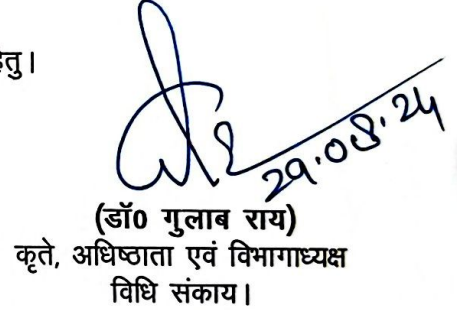 हेतु।
29.08.24
(डॉ0 गुलाब राय)
कृते, अधिष्ठाता एवं विभागाध्यक्ष
विधि संकाय।